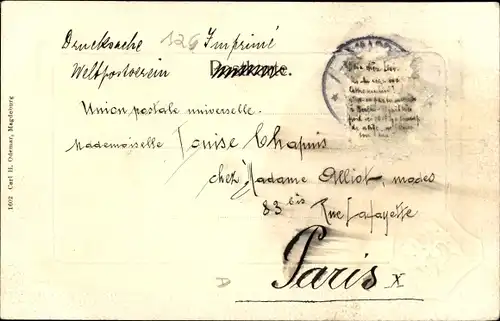 Drucksache 126 Imprimé
Weltpostverein Postkarte.
Union postale universelle.
Mademoiselle Louise Chapuis
chez Madame Alliot, modes
83 bis Rue Lafayette
Paris X
D
1602 Carl H. Odemar, Magdeburg